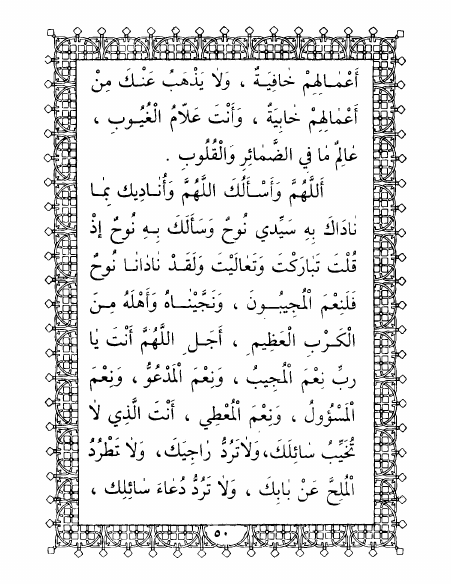 أَعْمَـالِهِمْ خَافِيَـةٌ ، وَلَا يَذْهَبُ عَنْـكَ مِنْ
أَعْمَالِهِمْ خَابِيَةٌ ، وَأَنْتَ عَلَّامُ الْغُيُوبِ ،
عَالِمٌ مَا فِي الضَّمَائِرِ وَالْقُلُوبِ .
أَللَّهُمَّ وَأَسْـأَلُكَ اللَّهُمَّ وَأُنَـادِيك بِمَـا
نَادَاكَ بِهِ سَيِّدِي نُوحٌ وَسَأَلَكَ بِـهِ نُوحٌ إِذْ
قُلْتَ تَبَارَكْتَ وَتَعَالَيْتَ وَلَقَـدْ نَادَانَـا نُوحٌ
فَلَنِعْمَ الْمُجِيبُـونَ ، وَنَجَّيْنَـاهُ وَأَهْلَهُ مِـنَ
الْكَـرْبِ الْعَظِيمِ ، أَجَـلِ اللَّهُمَّ أَنْتَ يَا
رَبِّ نِعْمَ الْمُجِيبُ ، وَنِعْمَ الْمَدْعُوُّ ، وَنِعْمَ
الْمَسْؤُولُ ، وَنِعْمَ الْمُعْطِي ، أَنْتَ الَّذِي لَا
تُخَيِّبُ سَائِلَكَ،وَلَاتَرُدُّ رَاجِيَكَ، وَلَا تَطْرُدُ
الْمُلِحَّ عَنْ بَابِكَ ، وَلَا تَرُدُّ دُعَاءَ سَائِلِكَ ،
٥٠